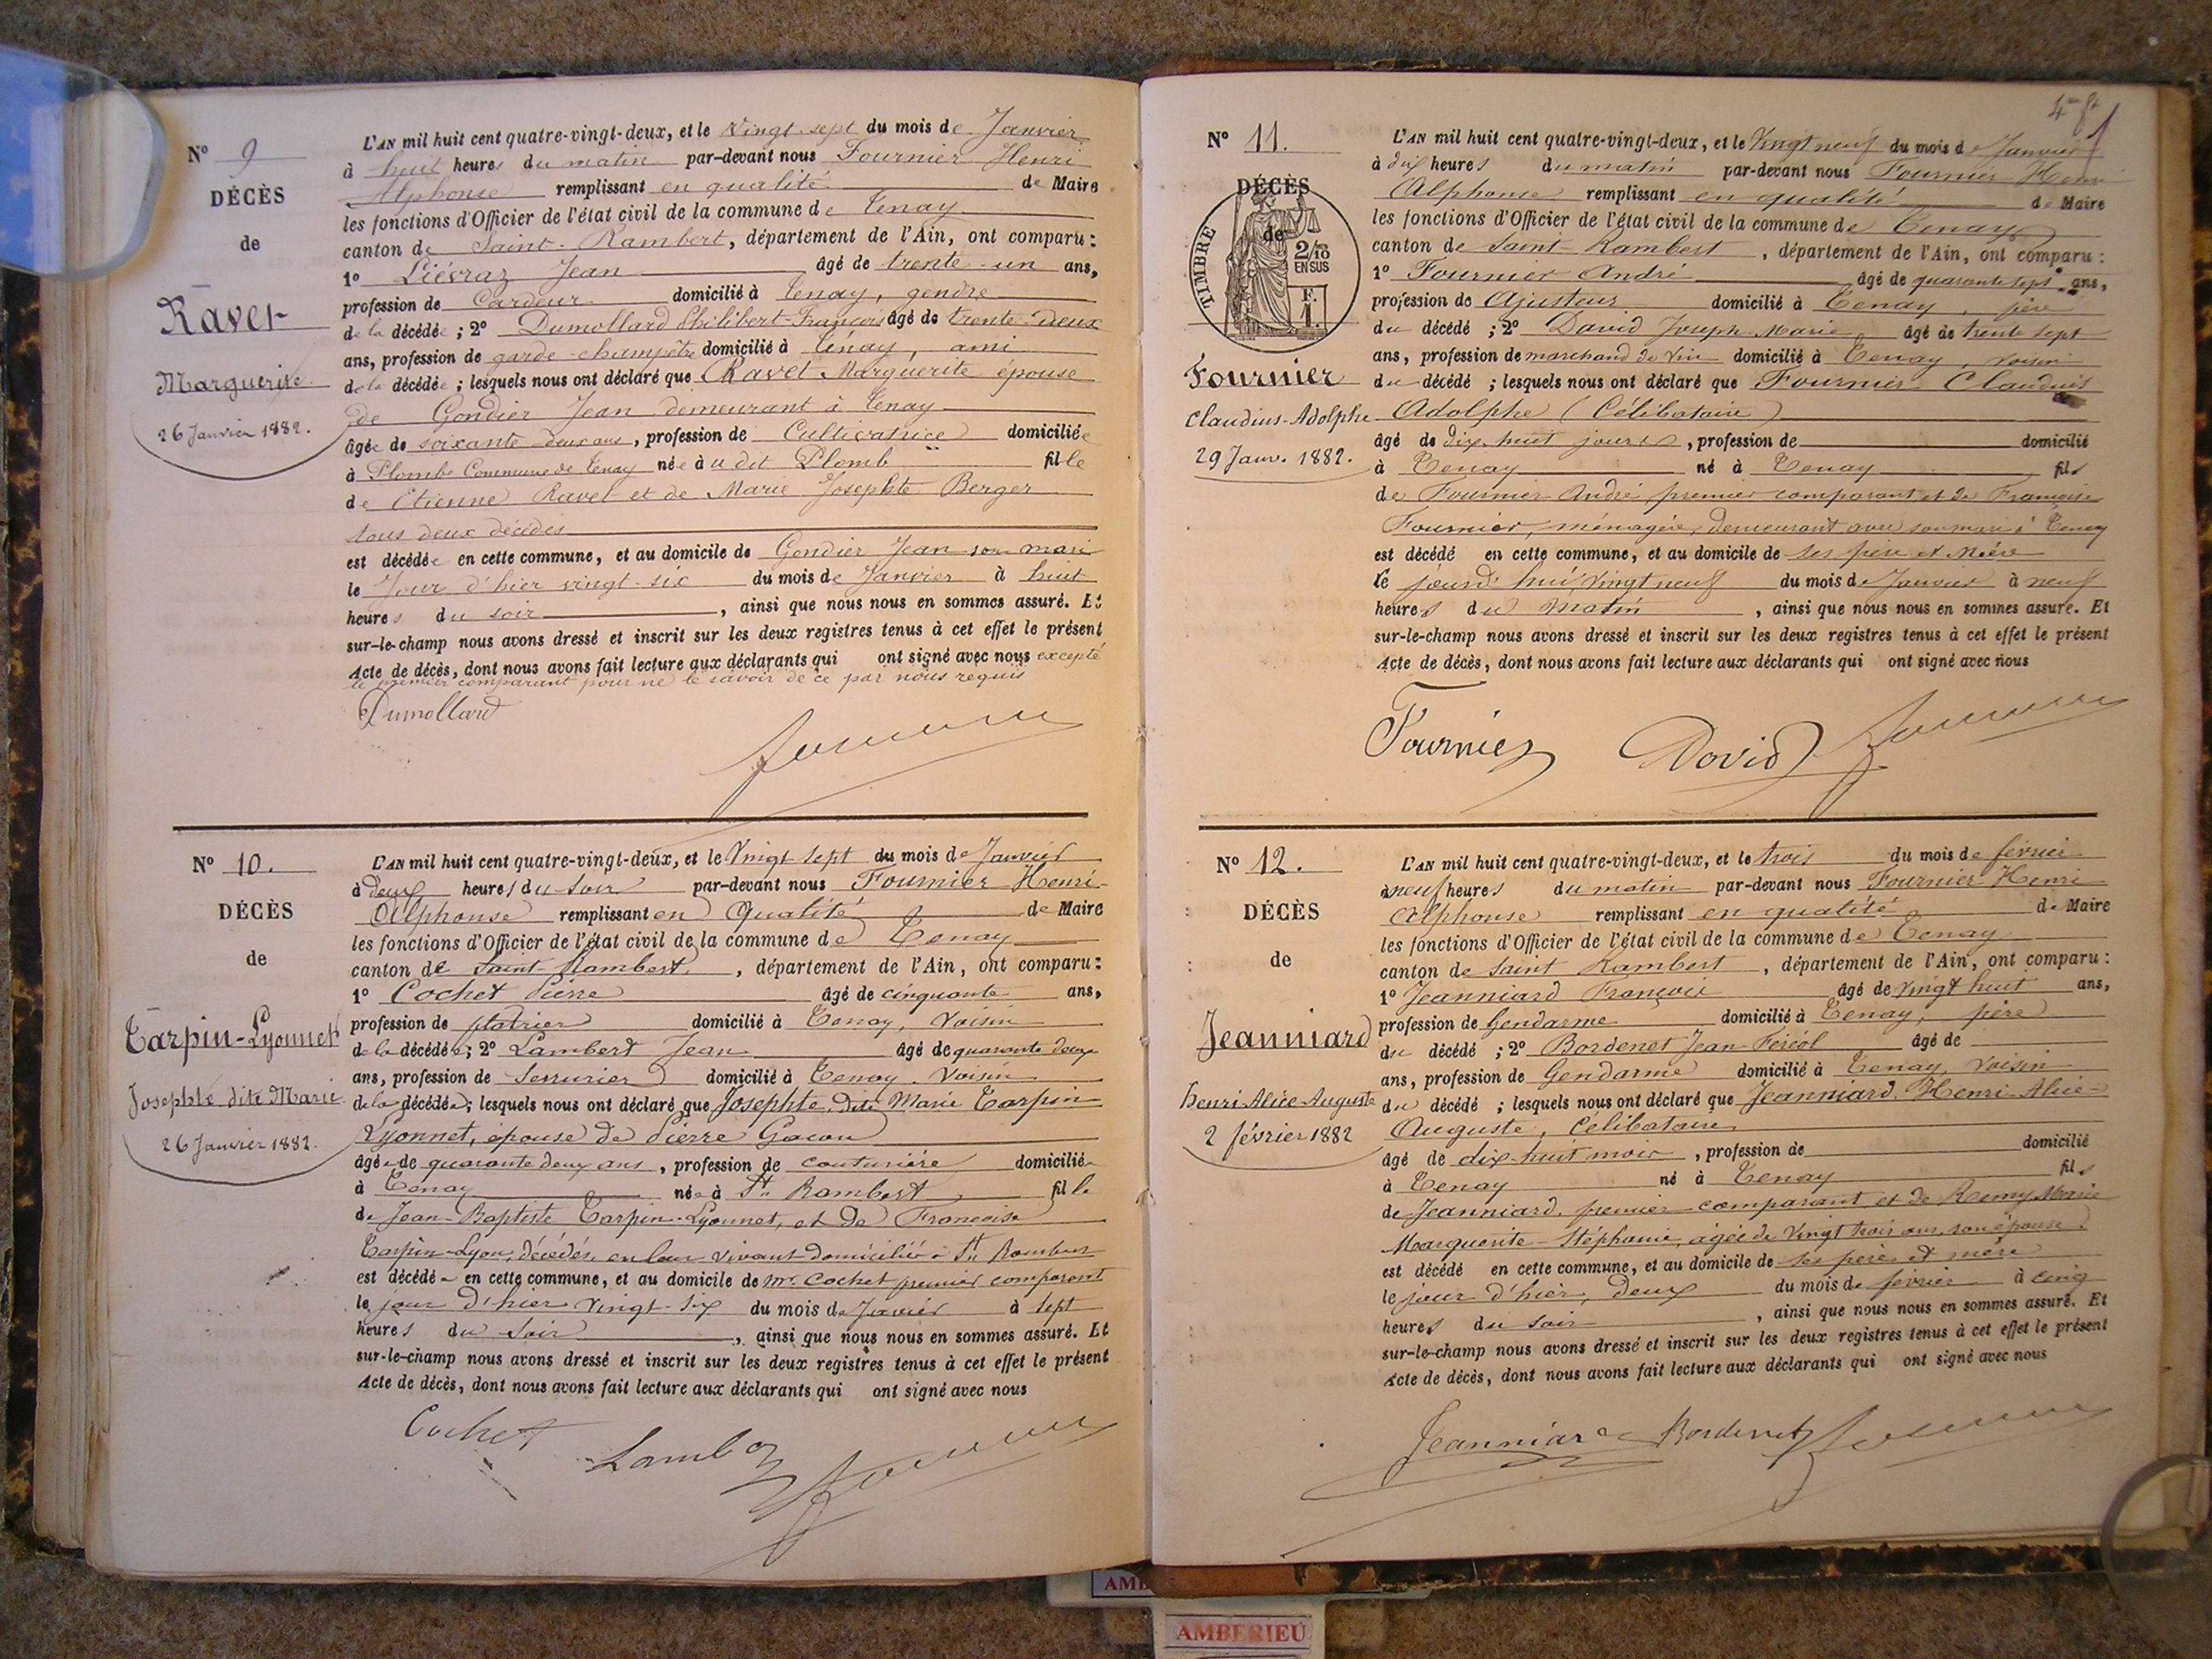 N° 9
DÉCÈS
de
Ravet
Marguerite
26 Janvier 1882.
L'AN mil huit cent quatre-vingt-deux, et le Vingt-sept du mois de Janvier
à huit heures du matin par-devant nous Fournier Henri
Alphonse remplissant en qualité de Maire
les fonctions d'Officier de l'état civil de la commune de Tenay
canton de Saint-Rambert, département de l'Ain, ont comparu :
1° Liévraz Jean âgé de trente-un ans,
profession de Cardeur domicilié à Tenay, gendre
de la décédée ; 2° Dumollard Philibert-François âgé de trente-deux
ans, profession de garde-champêtre domicilié à Tenay, ami
de la décédée ; lesquels nous ont déclaré que Ravet Marguerite épouse
de Gondier Jean demeurant à Tenay
âgée de soixante-deux ans, profession de Cultivatrice domiciliée
à Plombe Commune de Tenay née à u dit Plomb fille
de Etienne Ravet et de Marie Josephte Berger
tous deux décédés
est décédée en cette commune, et au domicile de Gondier Jean son mari
le Jour d'hier vingt-six du mois de Janvier à huit
heures du soir, ainsi que nous nous en sommes assuré. Et
sur-le-champ nous avons dressé et inscrit sur les deux registres tenus à cet effet le présent
Acte de décès, dont nous avons fait lecture aux déclarants qui ont signé avec nous excepté
le premier comparant pour ne le savoir de ce par nous requis
Dumollard
N° 10.
DÉCÈS
de
Tarpin-Lyonnet
Josephte dite Marie
26 Janvier 1882.
L'AN mil huit cent quatre-vingt-deux, et le Vingt sept du mois de Janvier
à deux heures du soir par-devant nous Fournier Henri-
Alphonse remplissant en qualité de Maire
les fonctions d'Officier de l'état civil de la commune de Tenay
canton de Saint-Rambert, département de l'Ain, ont comparu :
1° Cochet Pierre âgé de cinquante ans,
profession de platrier domicilié à Tenay, Voisin
de la décédée ; 2° Lambert Jean âgé de quarante deux
ans, profession de Serrurier domicilié à Tenay. Voisin
de la décédée ; lesquels nous ont déclaré que Josephte, dite Marie Tarpin
Lyonnet, épouse de Pierre Gacon
âgée de quarante deux ans, profession de couturière domiciliée
à Tenay née à St Rambert fille
de Jean-Baptiste Tarpin-Lyonnet, et de Françoise
Tarpin-Lyon, décédés, en leur vivant domiciliés à St Rambert
est décédée en cette commune, et au domicile de Mr Cochet premier comparant
le jour d'hier vingt-six du mois de Janvier à sept
heures du soir, ainsi que nous nous en sommes assuré. Et
sur-le-champ nous avons dressé et inscrit sur les deux registres tenus à cet effet le présent
Acte de décès, dont nous avons fait lecture aux déclarants qui ont signé avec nous
Cochet
N° 11.
DÉCÈS
de
TIMBRE
2/10
EN SUS
F.
1.
Fournier
Claudius-Adolphe
29 Janv. 1882.
L'AN mil huit cent quatre-vingt-deux, et le Vingt neuf du mois de Janvier
à dix heures du matin par-devant nous Fournier Henri
Alphonse remplissant en qualité de Maire
les fonctions d'Officier de l'état civil de la commune de Tenay
canton de Saint Rambert, département de l'Ain, ont comparu :
1° Fournier André âgé de quarante sept ans,
profession de Ajusteur domicilié à Tenay, père
du décédé ; 2° David Joseph Marie âgé de trente sept
ans, profession de marchand de Vin domicilié à Tenay, voisin
du décédé ; lesquels nous ont déclaré que Fournier Claudius
Adolphe (Célibataire)
âgé de dix huit jours, profession de domicilié
à Tenay né à Tenay fils
de Fournier André, premier comparant et de Françoise
Fournier, ménagère, demeurant avec son mari à Tenay
est décédé en cette commune, et au domicile de ses père et Mère
le jourd'hui, Vingt neuf du mois de Janvier à neuf
heures du Matin, ainsi que nous nous en sommes assuré. Et
sur-le-champ nous avons dressé et inscrit sur les deux registres tenus à cet effet le présent
Acte de décès, dont nous avons fait lecture aux déclarants qui ont signé avec nous
Fournier David
N° 12.
DÉCÈS
de
Jeanniard
Henri Alice Auguste
2 février 1882
L'AN mil huit cent quatre-vingt-deux, et le trois du mois de février
à neuf heures du matin par-devant nous Fournier Henri
Alphonse remplissant en qualité de Maire
les fonctions d'Officier de l'état civil de la commune de Tenay
canton de Saint Rambert, département de l'Ain, ont comparu :
1° Jeanniard François âgé de vingt huit ans,
profession de Gendarme domicilié à Tenay, père
du décédé ; 2° Bordenet Jean-Féréol âgé de
ans, profession de Gendarme domicilié à Tenay, Voisin
du décédé ; lesquels nous ont déclaré que Jeanniard, Henri-Alice-
Auguste, Célibataire
âgé de dix-huit mois, profession de domicilié
à Tenay né à Tenay fils
de Jeanniard, premier comparant et de Remy Marie
Marguerite-Stéphanie, âgée de Vingt trois ans, son épouse
est décédé en cette commune, et au domicile de ses père et mère
le jour d'hier, Deux du mois de février à cinq
heures du Soir, ainsi que nous nous en sommes assuré. Et
sur-le-champ nous avons dressé et inscrit sur les deux registres tenus à cet effet le présent
Acte de décès, dont nous avons fait lecture aux déclarants qui ont signé avec nous
Jeanniard Bordenet
AMBERIEU